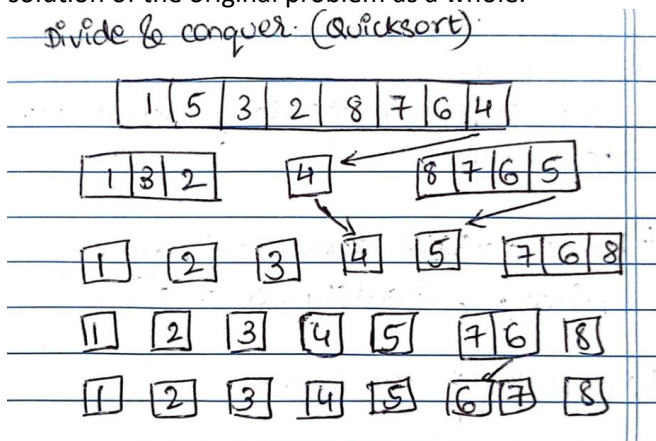 solution of the original problem as a whole.
Divide & conquer. (Quicksort)
1 5 3 2 8 7 6 4
1 3 2 4 8 7 6 5
1 2 3 4 5 7 6 8
1 2 3 4 5 7 6 8
1 2 3 4 5 6 7 8